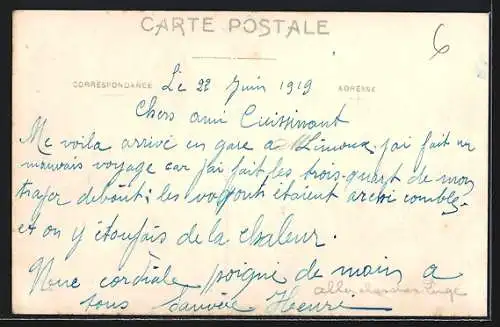 CARTE POSTALE
6
CORRESPONDANCE
ADRESSE
Le 22 Juin 1919
Chers ami Cuissinant
Me voila arrivé en gare a Limoux. j'ai fait un
mauvais voyage car j'ai fait les trois-quart de mon
trajer debout; les vagonts étaient archi comble,
et on y étoufais de la chaleur.
Une cordiale poigné de main a
tous Henri